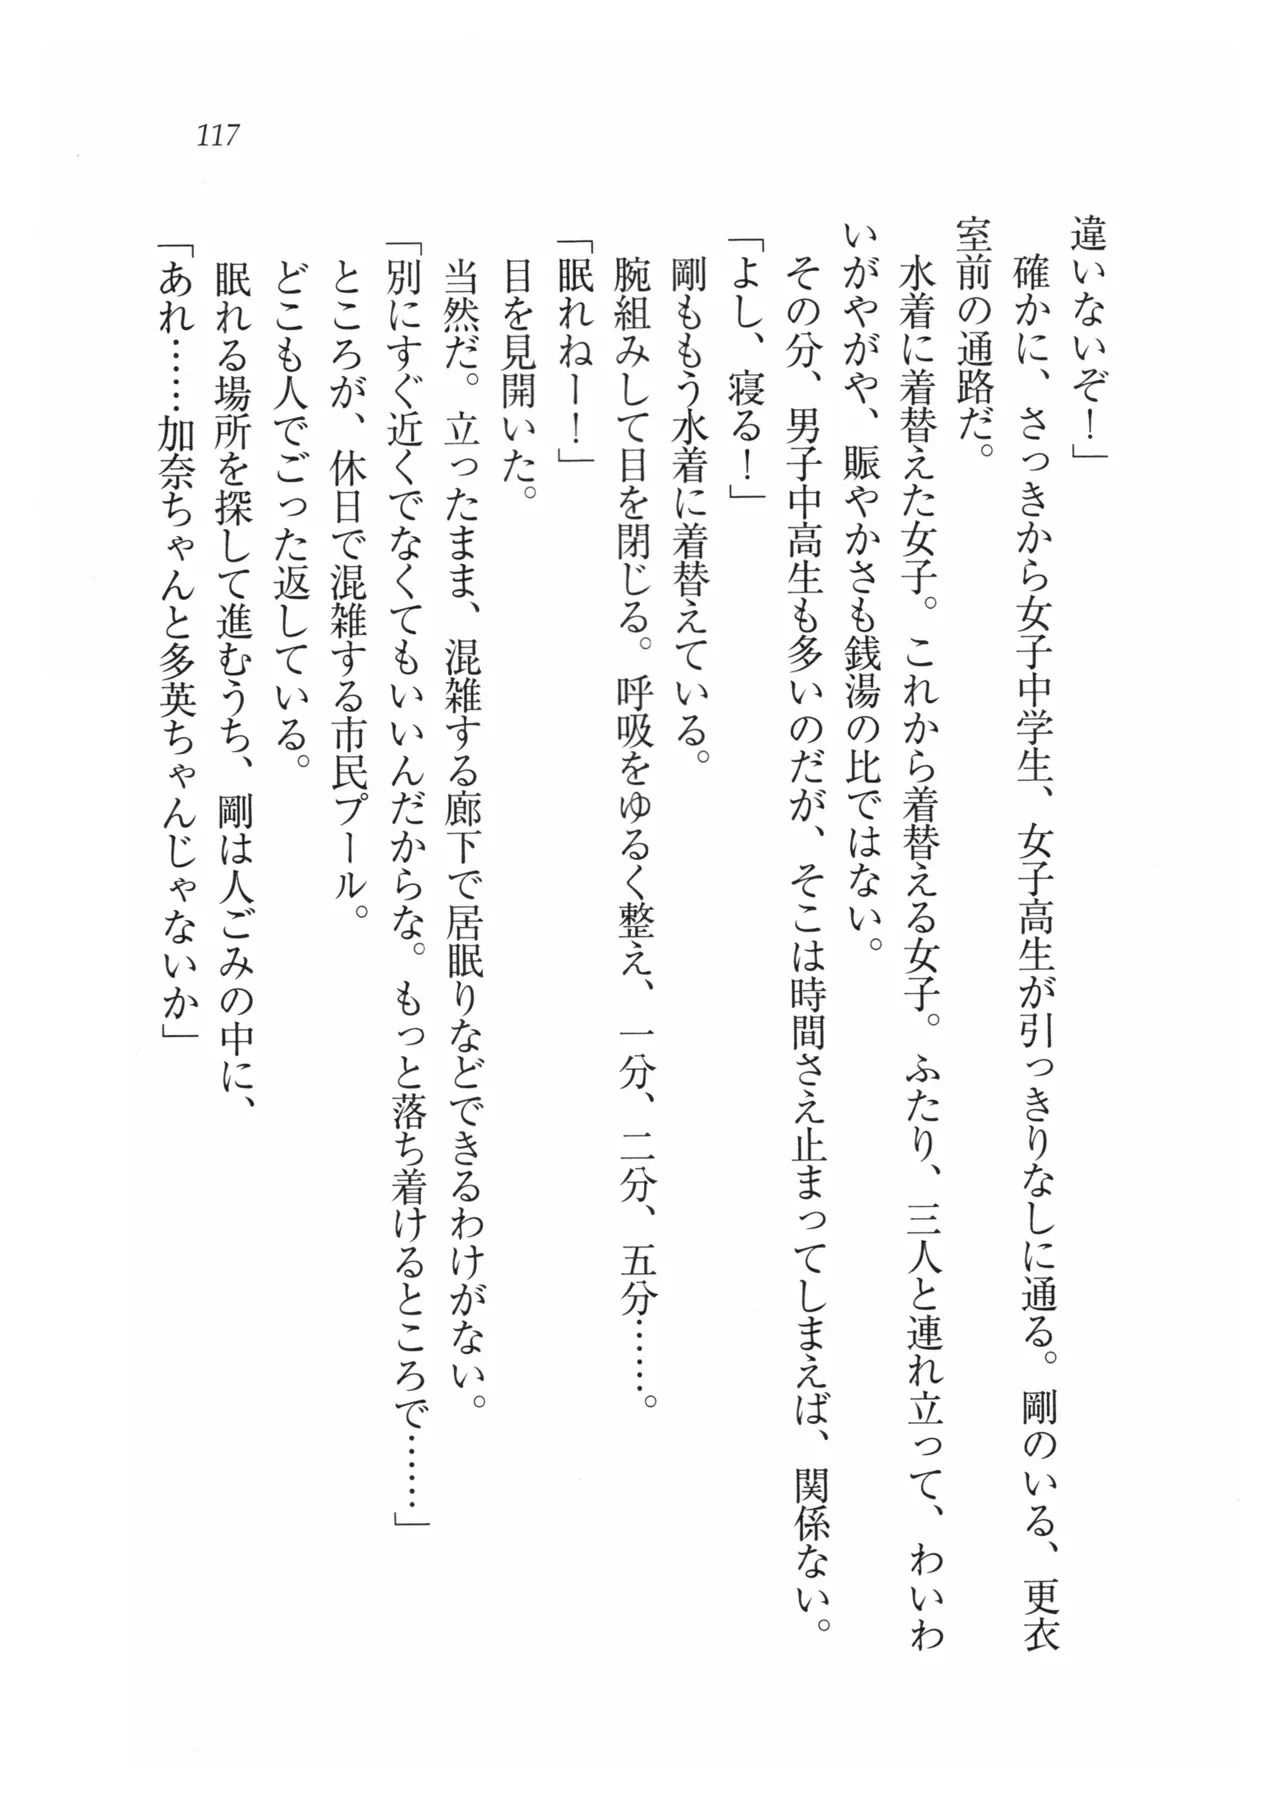 117
違いないぞ！」
　確かに、さっきから女子中学生、女子高生が引っきりなしに通る。剛のいる、更衣
室前の通路だ。
　水着に着替えた女子。これから着替える女子。ふたり、三人と連れ立って、わいわ
いがやがや、賑やかさも銭湯の比ではない。
　その分、男子中高生も多いのだが、そこは時間さえ止まってしまえば、関係ない。
「よし、寝る！」
　剛ももう水着に着替えている。
　腕組みして目を閉じる。呼吸をゆるく整え、一分、二分、五分……。
「眠れねー！」
　目を見開いた。
　当然だ。立ったまま、混雑する廊下で居眠りなどできるわけがない。
「別にすぐ近くでなくてもいいんだからな。もっと落ち着けるところで……」
　ところが、休日で混雑する市民プール。
　どこも人でごった返している。
　眠れる場所を探して進むうち、剛は人ごみの中に、
「あれ……加奈ちゃんと多英ちゃんじゃないか」